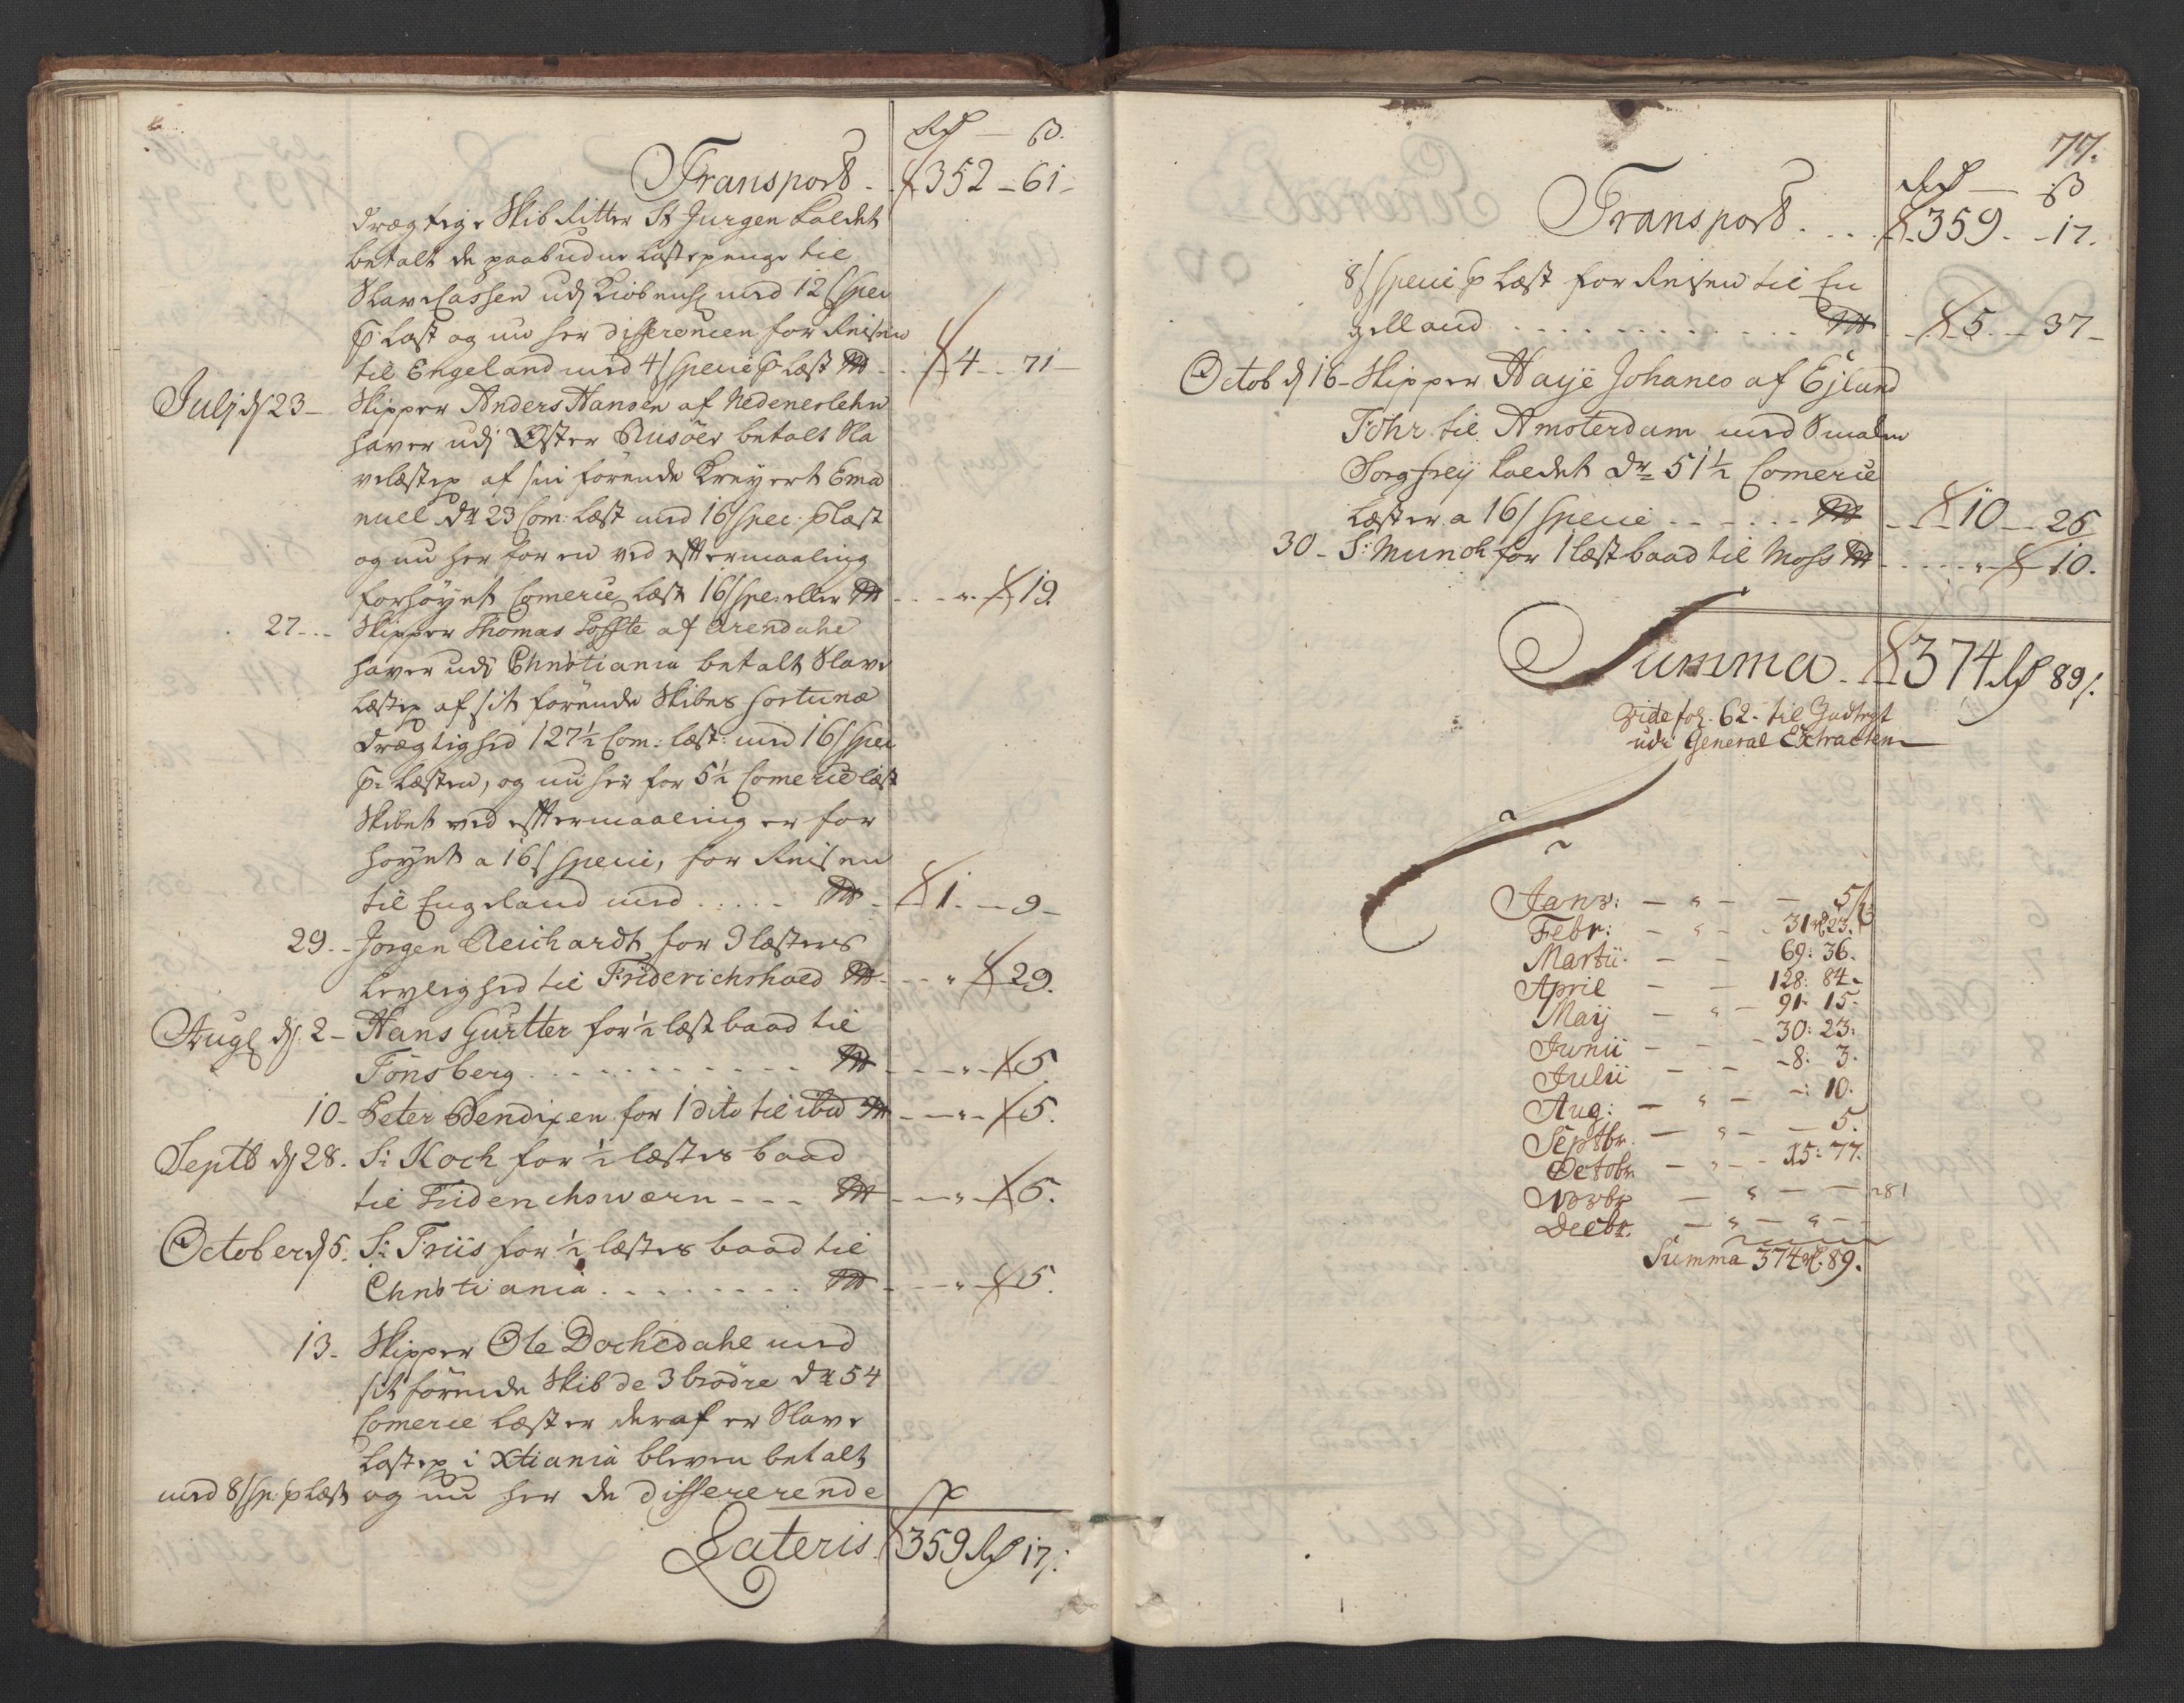 Rd — ß.
Transport - 352 - 61 -
drægtige Skib Ritter St Jurgen kaldet
betalt de paabudne lastepenge til
Slave Cassen udj Kiöbenhg med 12 ſ Spec
p Læst og nu her differencen for Reisen
til Engeland med 4 ſ Specie p Læst - 4 - 71 -
Julj d 23 - Skipper Anders Hansen af Nedeneslehn
haver udj Öster Riisöer betalt Sla
velæstep af sin förende Kreyert Ema
nuel dr 23 Com: Læst med 16 ſ Spec: p Læst
og nu her for en ved eftermaaling
forhöyet Comerce Læst 16 ſ Spe: eller - " - 19
27 - Skipper Thomas Toffte af Arendahl
haver udj Christiania betalt Slave
Læstep af sit förende Skibes Fortuna
drægtighed 127½ Com: læst: med 16 ſ Spec
p Læsten, og nu her for 5½ Comerce læst
Skibet ved eftermaaling er for
höyet a 16 ſ Specie, for Reisen
til Engeland med . . . . . - 1 - 9 -
29 - Jörgen Reichardt for 3 læsters
Leylighed til Friderichshald - " - 29.
Augl d: 2 - Hans Gurtter for ½ læst baad til
Tönsberg . . . . . . . . - " - 5
10 - Peter Bendixen for 1 dito til ibid - " - 5.
Septb d 28. Sr Koch for ½ læsters baad
til Friderichswærn - - - - " - 5.
October d 5. Sr Friis for ½ læsters baad til
Christiania . . . . . . . . - " - 5.
13 - Skipper Ole Dochedahl med
sit förende Skib de 3 brödre dr 54
Comerce Læster deraf er Slave
Lastep i Xtiania bleven betalt
med 8 ſ Sp: p Læst og nu her de differerende
Lateris 359 Rd 17 ſ.
77.
Rd — ß
Transport . . . 359 - 17.
8 ſ Specie p Læst for Reisen til En
gelland . . . . . . . . . . . - 5 - 37 -
Octob d 16 - Skipper Haye Johanes af Ejland
Föhr til Amsterdam med Smalen
Sorgfrey kaldet dr 51½ Comerce
Læster a 16 ſ Specie . . . . . . - 10 - 25
30 - Sr Munch for 1 læst baad til Moss . . . . . " - 10.
Summa - 374 Rd 89 ſ.
Vide fol. 62 - til Indtegt
udi General Extracten
Janv: — " — — 5 ß
Febr: — " — 31 rd 23.
Martii — — 69: 36.
April — — 128: 84.
Maij — " — 91: 15.
Junii — — 30: 23.
Julii — — 8: 3.
Aug: — " — -: 10.
Septbr. — " — — 5.
Octobr — " — 15: 77.
Novbr — " — —
Decbr. — " — " —
Summa 374 rd. 89.